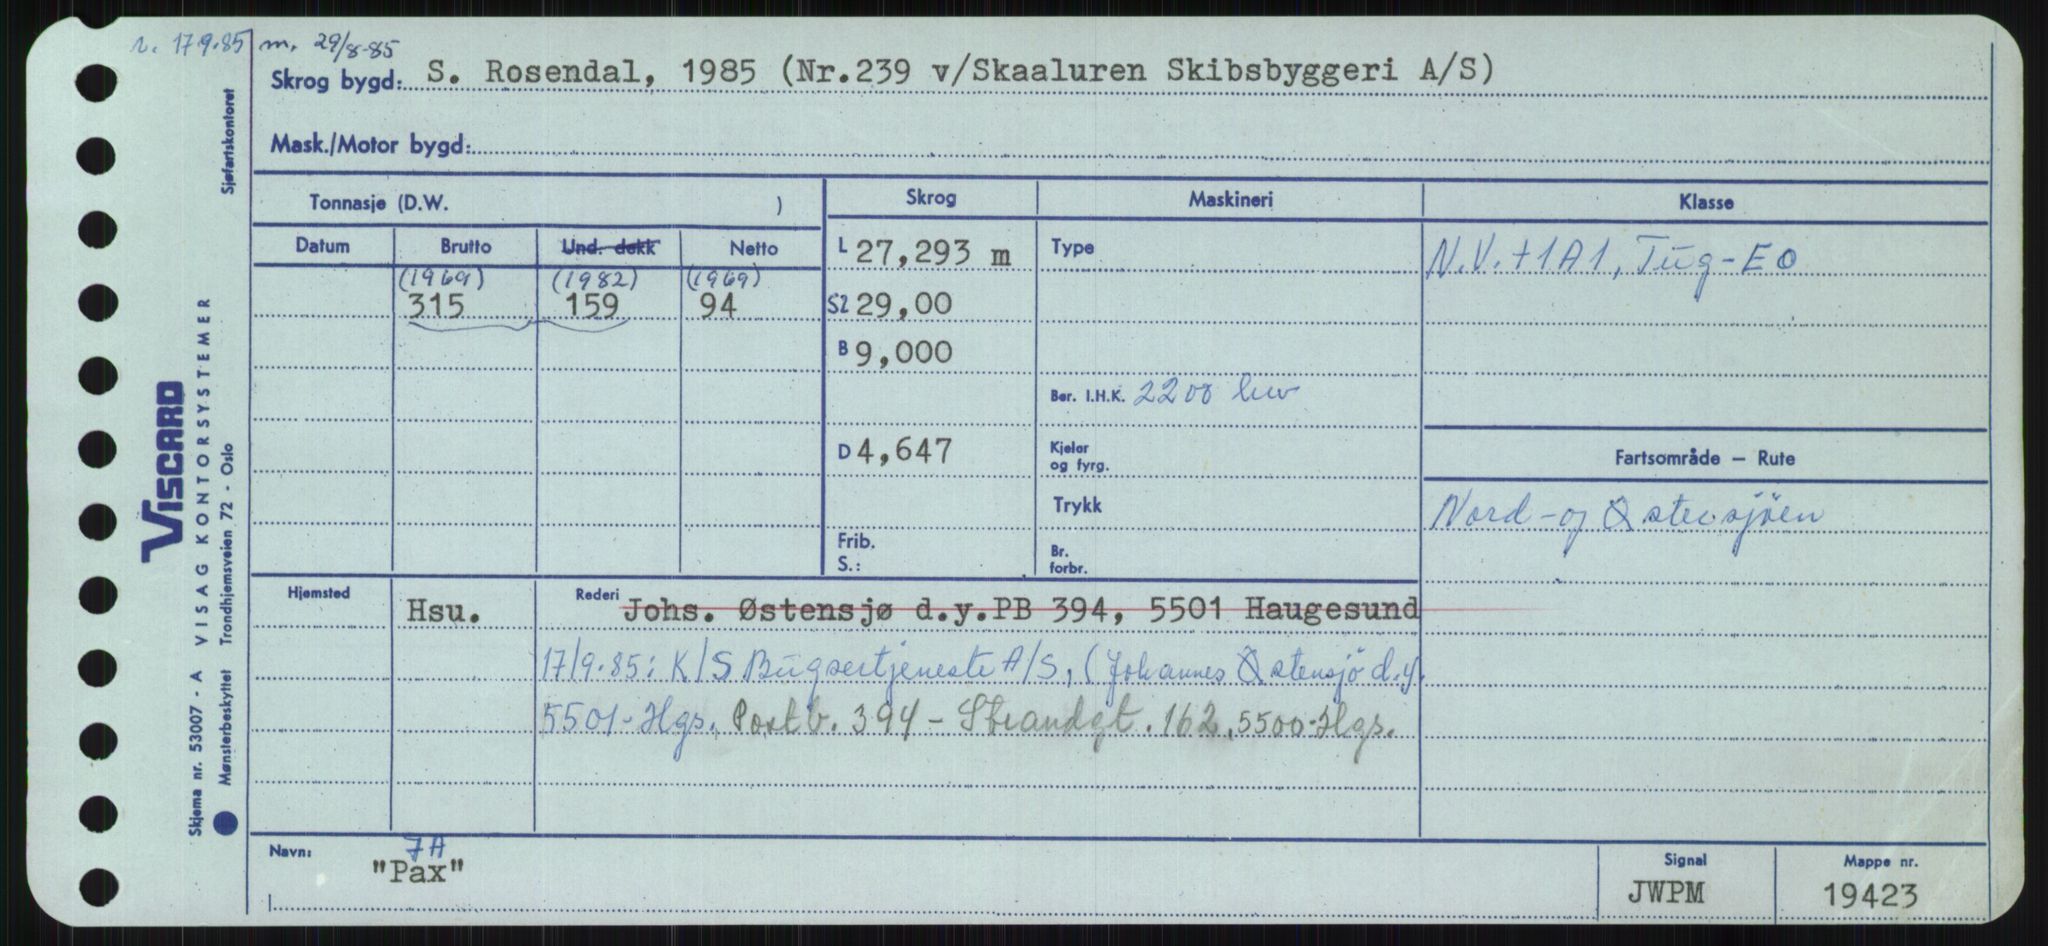 r. 17.9.85 m. 29/8-85
Skrog bygd: S. Rosendal, 1985 (Nr.239 v/Skaaluren Skibsbyggeri A/S)
Mask./Motor bygd:
Tonnasje (D.W. )
Skrog
Maskineri
Klasse
Datum
Brutto
Und. dekk
Netto
(1969) (1982) (1969)
315 159 94
L 27,293 m
S2 29,00
B 9,000
D 4,647
Frib.
S.:
Type
Ber. I.H.K. 2200 kw
Kjelar
og fyrg.
Trykk
Br.
forbr.
N.V. +1A1, Tug-E0
Fartsområde — Rute
Nord-og Østensjöen
Hjemsted
Hsu.
Rederi Johs. Østensjø d.y.PB 394, 5501 Haugesund
17/9.85: K/S Bugsertjeneste A/S, (Johannes Østensjö d.y.
5501-Hgs., Postb. 394 - Strandgt. 162, 5500-Hgs.
Navn:
7A
"Pax"
Signal
JWPM
Mappe nr.
19423
VISCARD
Skjema nr. 53007 - A VISAG KONTORSYSTEMER
Mønsterbeskyttet Trondhjemsveien 72 - Oslo
Sjøfartskontoret